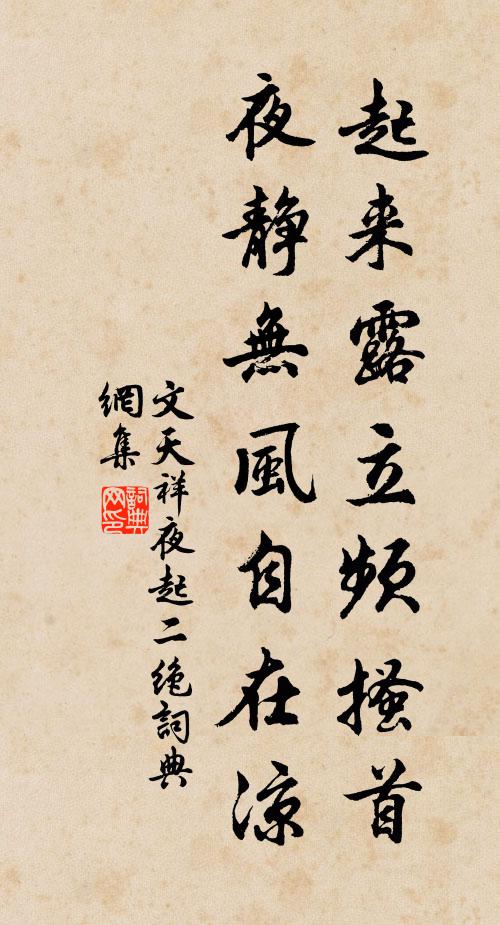 起来露立频搔首
夜静無風自在凉
文天祥夜起二绝詞典
網集
詞典
网印